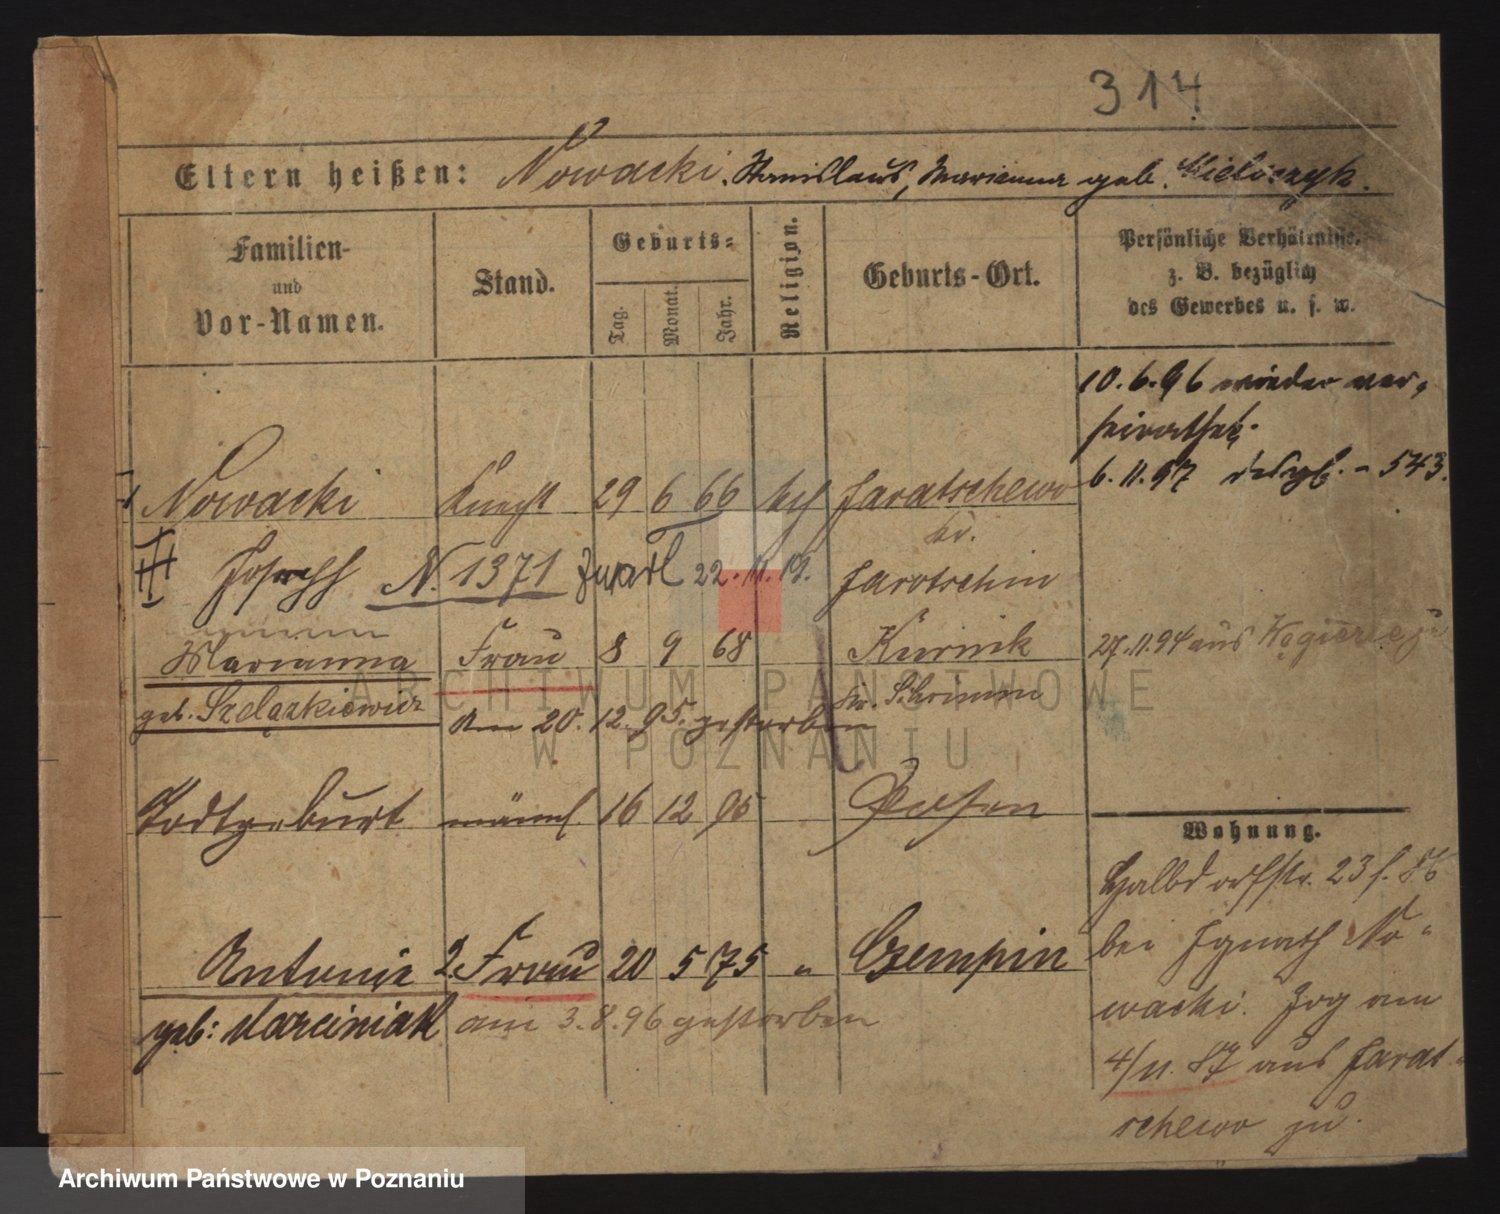 314
Eltern heißen: Nowacki, Stanislaus, Marianna geb.
Familien-
und
Vor-Namen.
Stand.
Geburts-
Tag.
Monat.
Jahr.
Religion.
Geburts-Ort.
Persönliche Verhältnisse,
z. B. bezüglich
des Gewerbes u. s. w.
10.6.96 wieder ver-
heirathet.
6.11.97 desgl. - 543.
Nowacki Knecht 29 6 66 kth Jaratschewo
Kr.
Joseph N. 1371 22.11.19. Jarotschin
Marianna Frau 8 9 68 Kurnik
27.11.94 aus zu
geb. Szelązkiewicz
am 20.12.95. gestorben Kr. Schrimm
Todtgeburt männl. 16 12 95 Posen
Wohnung.
Halbdorfstr. 23 f. 86
bei Ignath No-
wacki. Zog am
4/11. 87 aus Jarat-
schewo zu.
Antonie 2. Frau 20 5 75 " Czempin
geb: Marciniak am 3.8.96 gestorben
ARCHIWUM PAŃSTWOWE
W POZNANIU
Archiwum Państwowe w Poznaniu